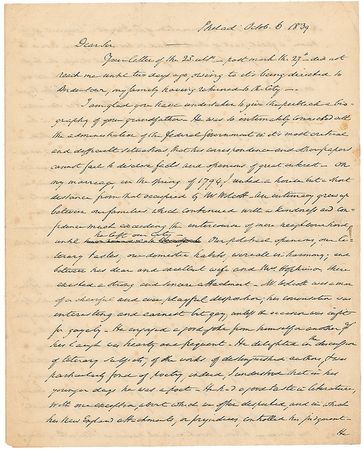 Philad Octob. 6 1839
Dear Sir
Your letter of the 25. ult. – post mark the 27th – did not
reach me until two days ago, owing to its being directed to
my family having returned to the City –
I am glad you have undertaken to give the public a bio-
graphy of your grandfather. He was so intimately connected with
the administration of the Federal Government in its most critical
and difficult situations, that his correspondence and other papers
cannot fail to disclose facts and opinions of great interest – On
my marriage in the Spring of 1794, I rented a house but a short
distance from that occupied by Mr Wolcott. An intimacy grew up
between our families that continued with a kindness and con-
fidence much exceeding the intercourse of mere neighbourhood,
he left our City –
until Our political opinions, our li-
terary tastes, our domestic habits, were all in harmony; and
between his dear and excellent wife and Mrs Hopkinson there
existed a strong and sincere attachment – Mr Wolcott was a man
of a cheerful and even playful disposition; his conversation was
interesting and earnest but gay, unless the occasion was unfit
for gayety – He enjoyed a good joke from himself or another, &
his laugh was hearty and frequent. He delighted in the discussion
of literary subjects, & the works of distinguished authors, & was
particularly fond of poetry; indeed, I understood that in his
younger days he was a poet – He had a good taste in literature,
with one exception, about which we often disputed, and in which
his New England attachments, or prejudices, controlled his judgment –
He